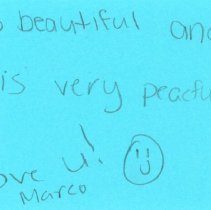 o beautiful and
is very peacfu
ove u!
Marco